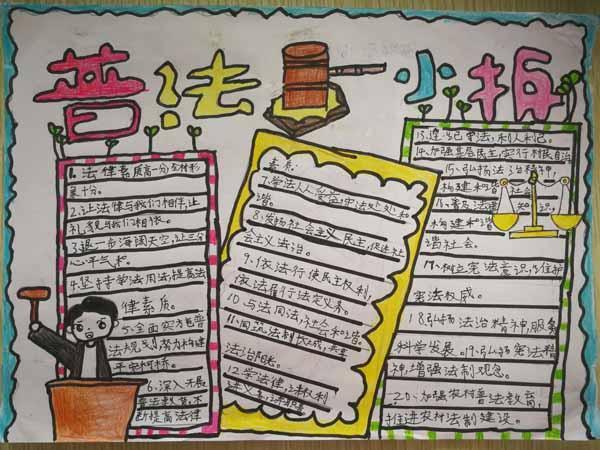 普法小报
1.法律素质高一分,各村彩
票十分。
2.让法律与我们相伴,让
礼貌与我们相依。
3.退一步海阔天空,让三分
心平气和。
4.坚持学法用法,提高法
律素质。
5.全面实施普
法规划努力构建
平安柯桥。
6.深入开展
断提高法律
素质。
7.学法人人受益,守法处处和
谐。
8.发扬社会主义民主,促进社
会主义法治。
9.依法行使民主权利,
依法履行法定义务。
10.与法同行,社会和谐。
11.同筑法制长城,共享
法治阳光。
12.学法律,讲权利
讲义务,讲
13.遵纪守法,利人利己。
14.加强基层民主,实行村民自治
15.弘扬法治精神,
构建和谐社会
16.普及法律知识,
构建和谐
谐社会。
17.树立宪法意识,维护
宪法权威。
18.弘扬法治精神,服务
科学发展。19.弘扬宪法精
神,增强法制观念。
20.加强农村普法教育,
推进农村法制建设。